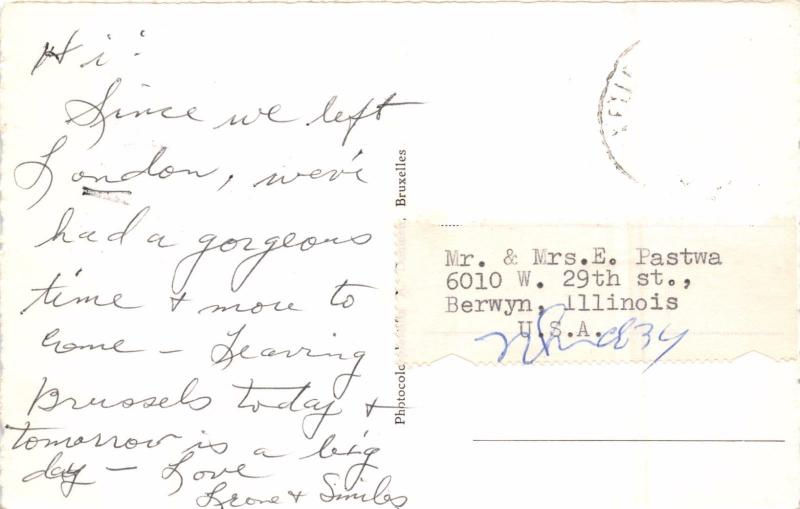 Hi!
Since we left
London, we've
had a gorgeous
time & more to
come - Leaving
Brussels today &
tomorrow is a big
day - Love
Leone & Smiles
Bruxelles
Mr. & Mrs.E. Pastwa
6010 W. 29th st.,
Berwyn, Illinois
U.S.A.